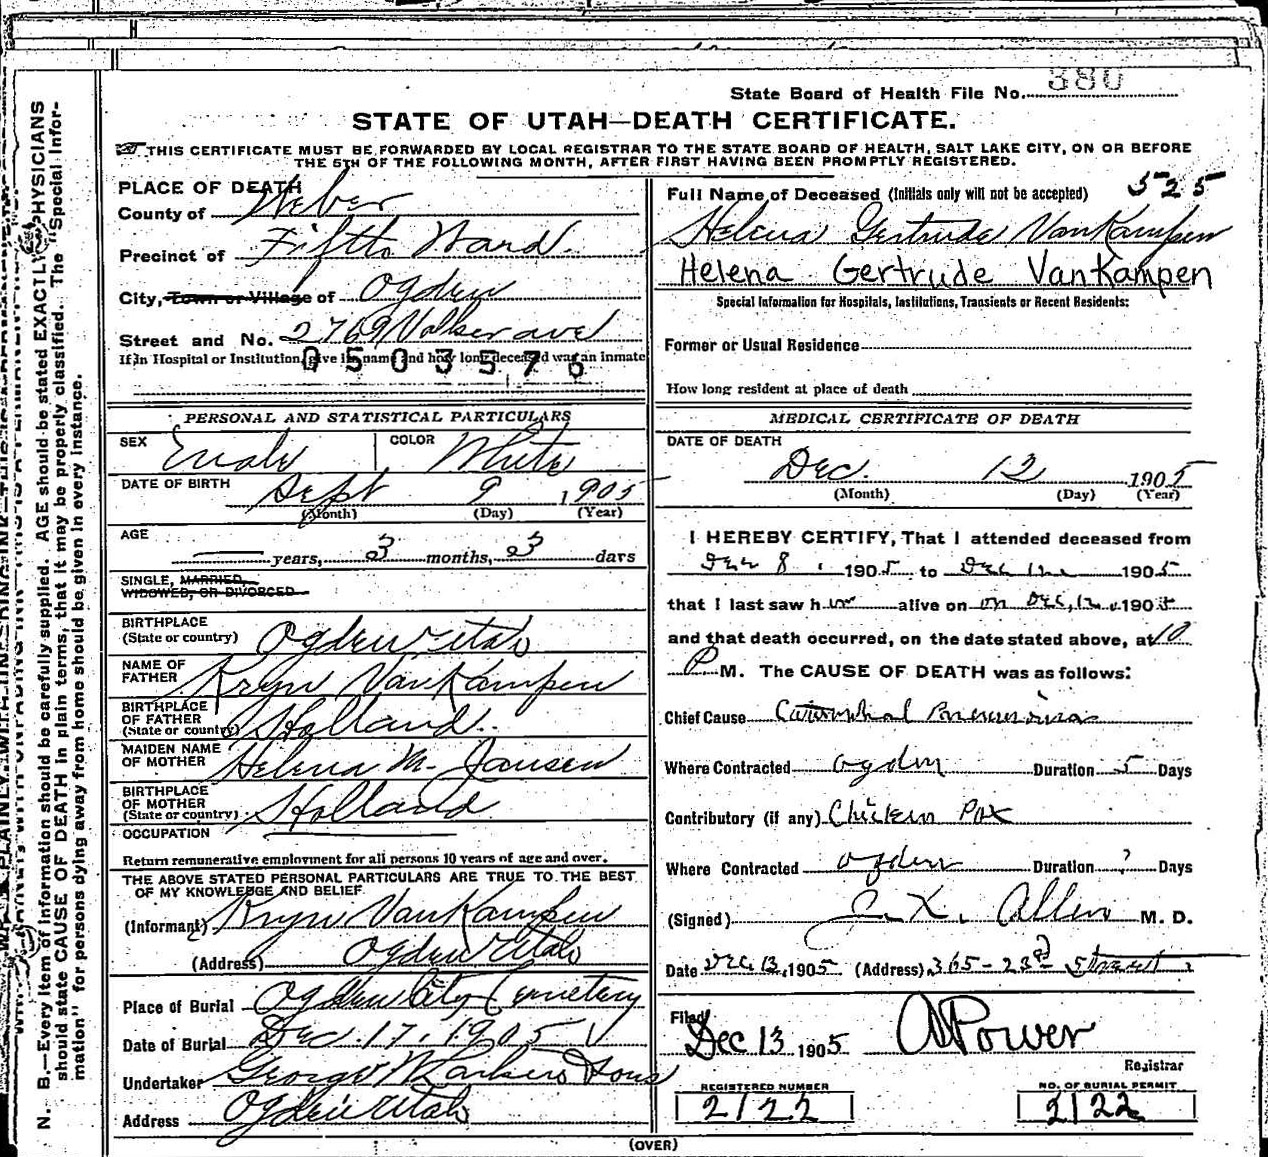 State Board of Health File No. 380
STATE OF UTAH—DEATH CERTIFICATE.
THIS CERTIFICATE MUST BE FORWARDED BY LOCAL REGISTRAR TO THE STATE BOARD OF HEALTH, SALT LAKE CITY, ON OR BEFORE
THE 5TH OF THE FOLLOWING MONTH, AFTER FIRST HAVING BEEN PROMPTLY REGISTERED.
PLACE OF DEATH
County of Weber
Precinct of Fifth Ward
City, Town or Village of Ogden
Street and No. 2769 ave
If in Hospital or Institution, give its name and how long deceased was an inmate
0503576
PERSONAL AND STATISTICAL PARTICULARS
SEX COLOR White
DATE OF BIRTH Sept 9 1905
(Month) (Day) (Year)
AGE
years, 3 months, 3 days
SINGLE, MARRIED,
WIDOWED, OR DIVORCED
BIRTHPLACE
(State or country) Ogden Utah
NAME OF
FATHER Kryn VanKampen
BIRTHPLACE
OF FATHER
(State or country) Holland.
MAIDEN NAME
OF MOTHER Helena M. Jansen
BIRTHPLACE
OF MOTHER
(State or country) Holland
OCCUPATION
Return remunerative employment for all persons 10 years of age and over.
THE ABOVE STATED PERSONAL PARTICULARS ARE TRUE TO THE BEST
OF MY KNOWLEDGE AND BELIEF
(Informant) Kryn VanKampen
(Address) Ogden Utah
Place of Burial Ogden City Cemetery
Date of Burial Dec. 17, 1905
Undertaker George W Larkin & Sons
Address Ogden Utah
Full Name of Deceased (Initials only will not be accepted) 525
Helena Gertrude VanKampen
Helena Gertrude VanKampen
Special Information for Hospitals, Institutions, Transients or Recent Residents:
Former or Usual Residence
How long resident at place of death
MEDICAL CERTIFICATE OF DEATH
DATE OF DEATH
Dec. 12 1905
(Month) (Day) (Year)
I HEREBY CERTIFY, That I attended deceased from
Dec 8, 1905 to Dec 12 1905
that I last saw h alive on on Dec, 12 1905
and that death occurred, on the date stated above, at 10
P M. The CAUSE OF DEATH was as follows:
Chief Cause Catarrhal Pneumonia
Where Contracted Ogden Duration 5 Days
Contributory (if any) Chicken Pox
Where Contracted Ogden Duration ? Days
(Signed) Allen M. D.
Date Dec 13, 1905 (Address) 365-23rd Street
Filed
Dec 13 1905 Power
Registrar
REGISTERED NUMBER
2122
NO. OF BURIAL PERMIT
2122
(OVER)
N. B.—Every item of information should be carefully supplied. AGE should be stated EXACTLY. PHYSICIANS
should state CAUSE OF DEATH in plain terms, that it may be properly classified. The "Special Infor-
mation" for persons dying away from home should be given in every instance.